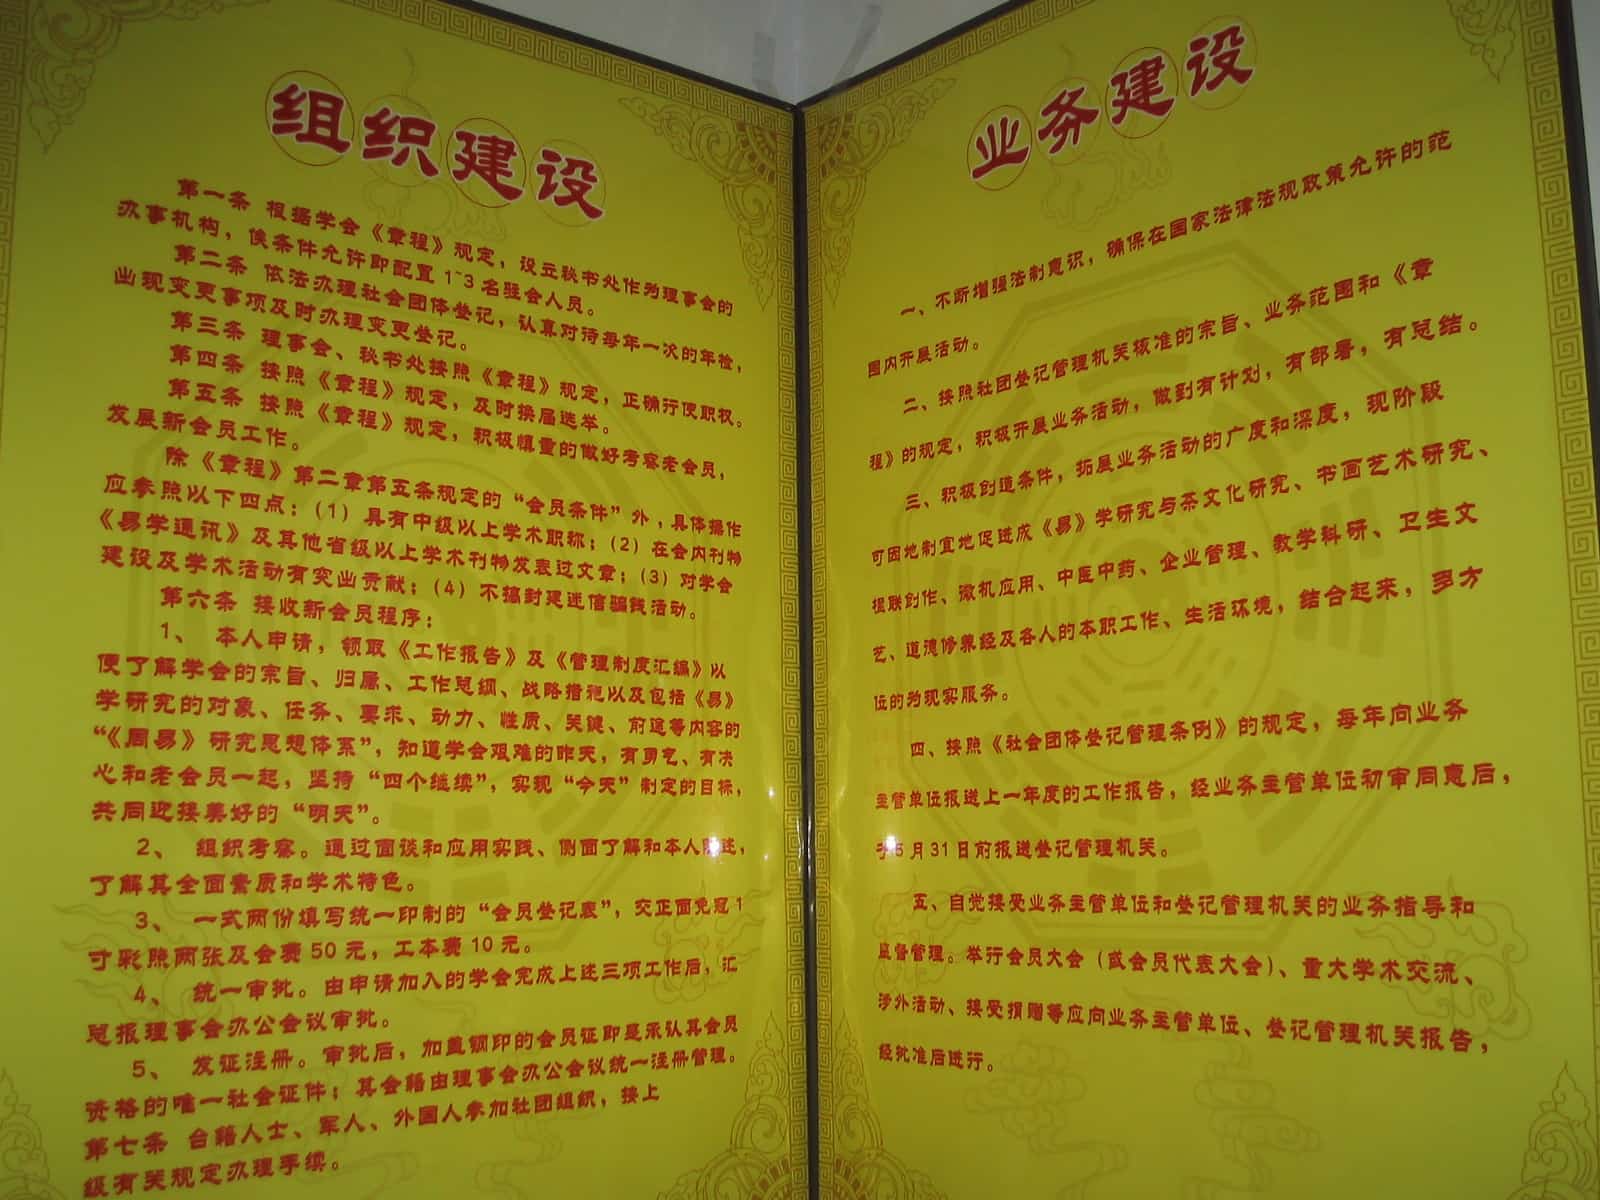 组织建设
第一条 根据学会《章程》规定，设立秘书处作为理事会的
办事机构，俟条件允许即配置1~3名驻会人员。
第二条 依法办理社会团体登记，认真对待每年一次的年检，
出现变更事项及时办理变更登记。
第三条 理事会、秘书处按照《章程》规定，正确行使职权。
第四条 按照《章程》规定，及时换届选举。
第五条 按照《章程》规定，积极慎重的做好考察老会员，
发展新会员工作。
除《章程》第二章第五条规定的“会员条件”外，具体操作
应参照以下四点：(1)具有中级以上学术职称；(2)在会内刊物
《易学通讯》及其他省级以上学术刊物发表过文章；(3)对学会
建设及学术活动有突出贡献；(4)不搞封建迷信骗钱活动。
第六条 接收新会员程序：
1、 本人申请，领取《工作报告》及《管理制度汇编》以
便了解学会的宗旨、归属、工作总纲、战略措施以及包括《易》
学研究的对象、任务、要求、动力、性质、关键、前途等内容的
“《周易》研究思想体系”，知道学会艰难的昨天，有勇气、有决
心和老会员一起，坚持“四个继续”，实现“今天”制定的目标，
共同迎接美好的“明天”。
2、 组织考察。通过面谈和应用实践、侧面了解和本人陈述，
了解其全面素质和学术特色。
3、 一式两份填写统一印制的“会员登记表”，交正面免冠1
寸彩照两张及会费50元，工本费10元。
4、 统一审批。由申请加入的学会完成上述三项工作后，汇
总报理事会办公会议审批。
5、 发证注册。审批后，加盖钢印的会员证即是承认其会员
资格的唯一社会证件；其会籍由理事会办公会议统一注册管理。
第七条 台籍人士、军人、外国人参加社团组织，按上
级有关规定办理手续。
业务建设
一、不断增强法制意识，确保在国家法律法规政策允许的范
围内开展活动。
二、按照社团登记管理机关核准的宗旨、业务范围和《章
程》的规定，积极开展业务活动，做到有计划，有部署，有总结。
三、积极创造条件，拓展业务活动的广度和深度，现阶段
可因地制宜地促进成《易》学研究与茶文化研究、书画艺术研究、
楹联创作、微机应用、中医中药、企业管理、教学科研、卫生文
艺、道德修养经及各人的本职工作、生活环境，结合起来，多方
位的为现实服务。
四、按照《社会团体登记管理条例》的规定，每年向业务
主管单位报送上一年度的工作报告，经业务主管单位初审同意后，
于5月31日前报送登记管理机关。
五、自觉接受业务主管单位和登记管理机关的业务指导和
监督管理。举行会员大会（或会员代表大会）、重大学术交流、
涉外活动、接受捐赠等应向业务主管单位、登记管理机关报告，
经批准后进行。